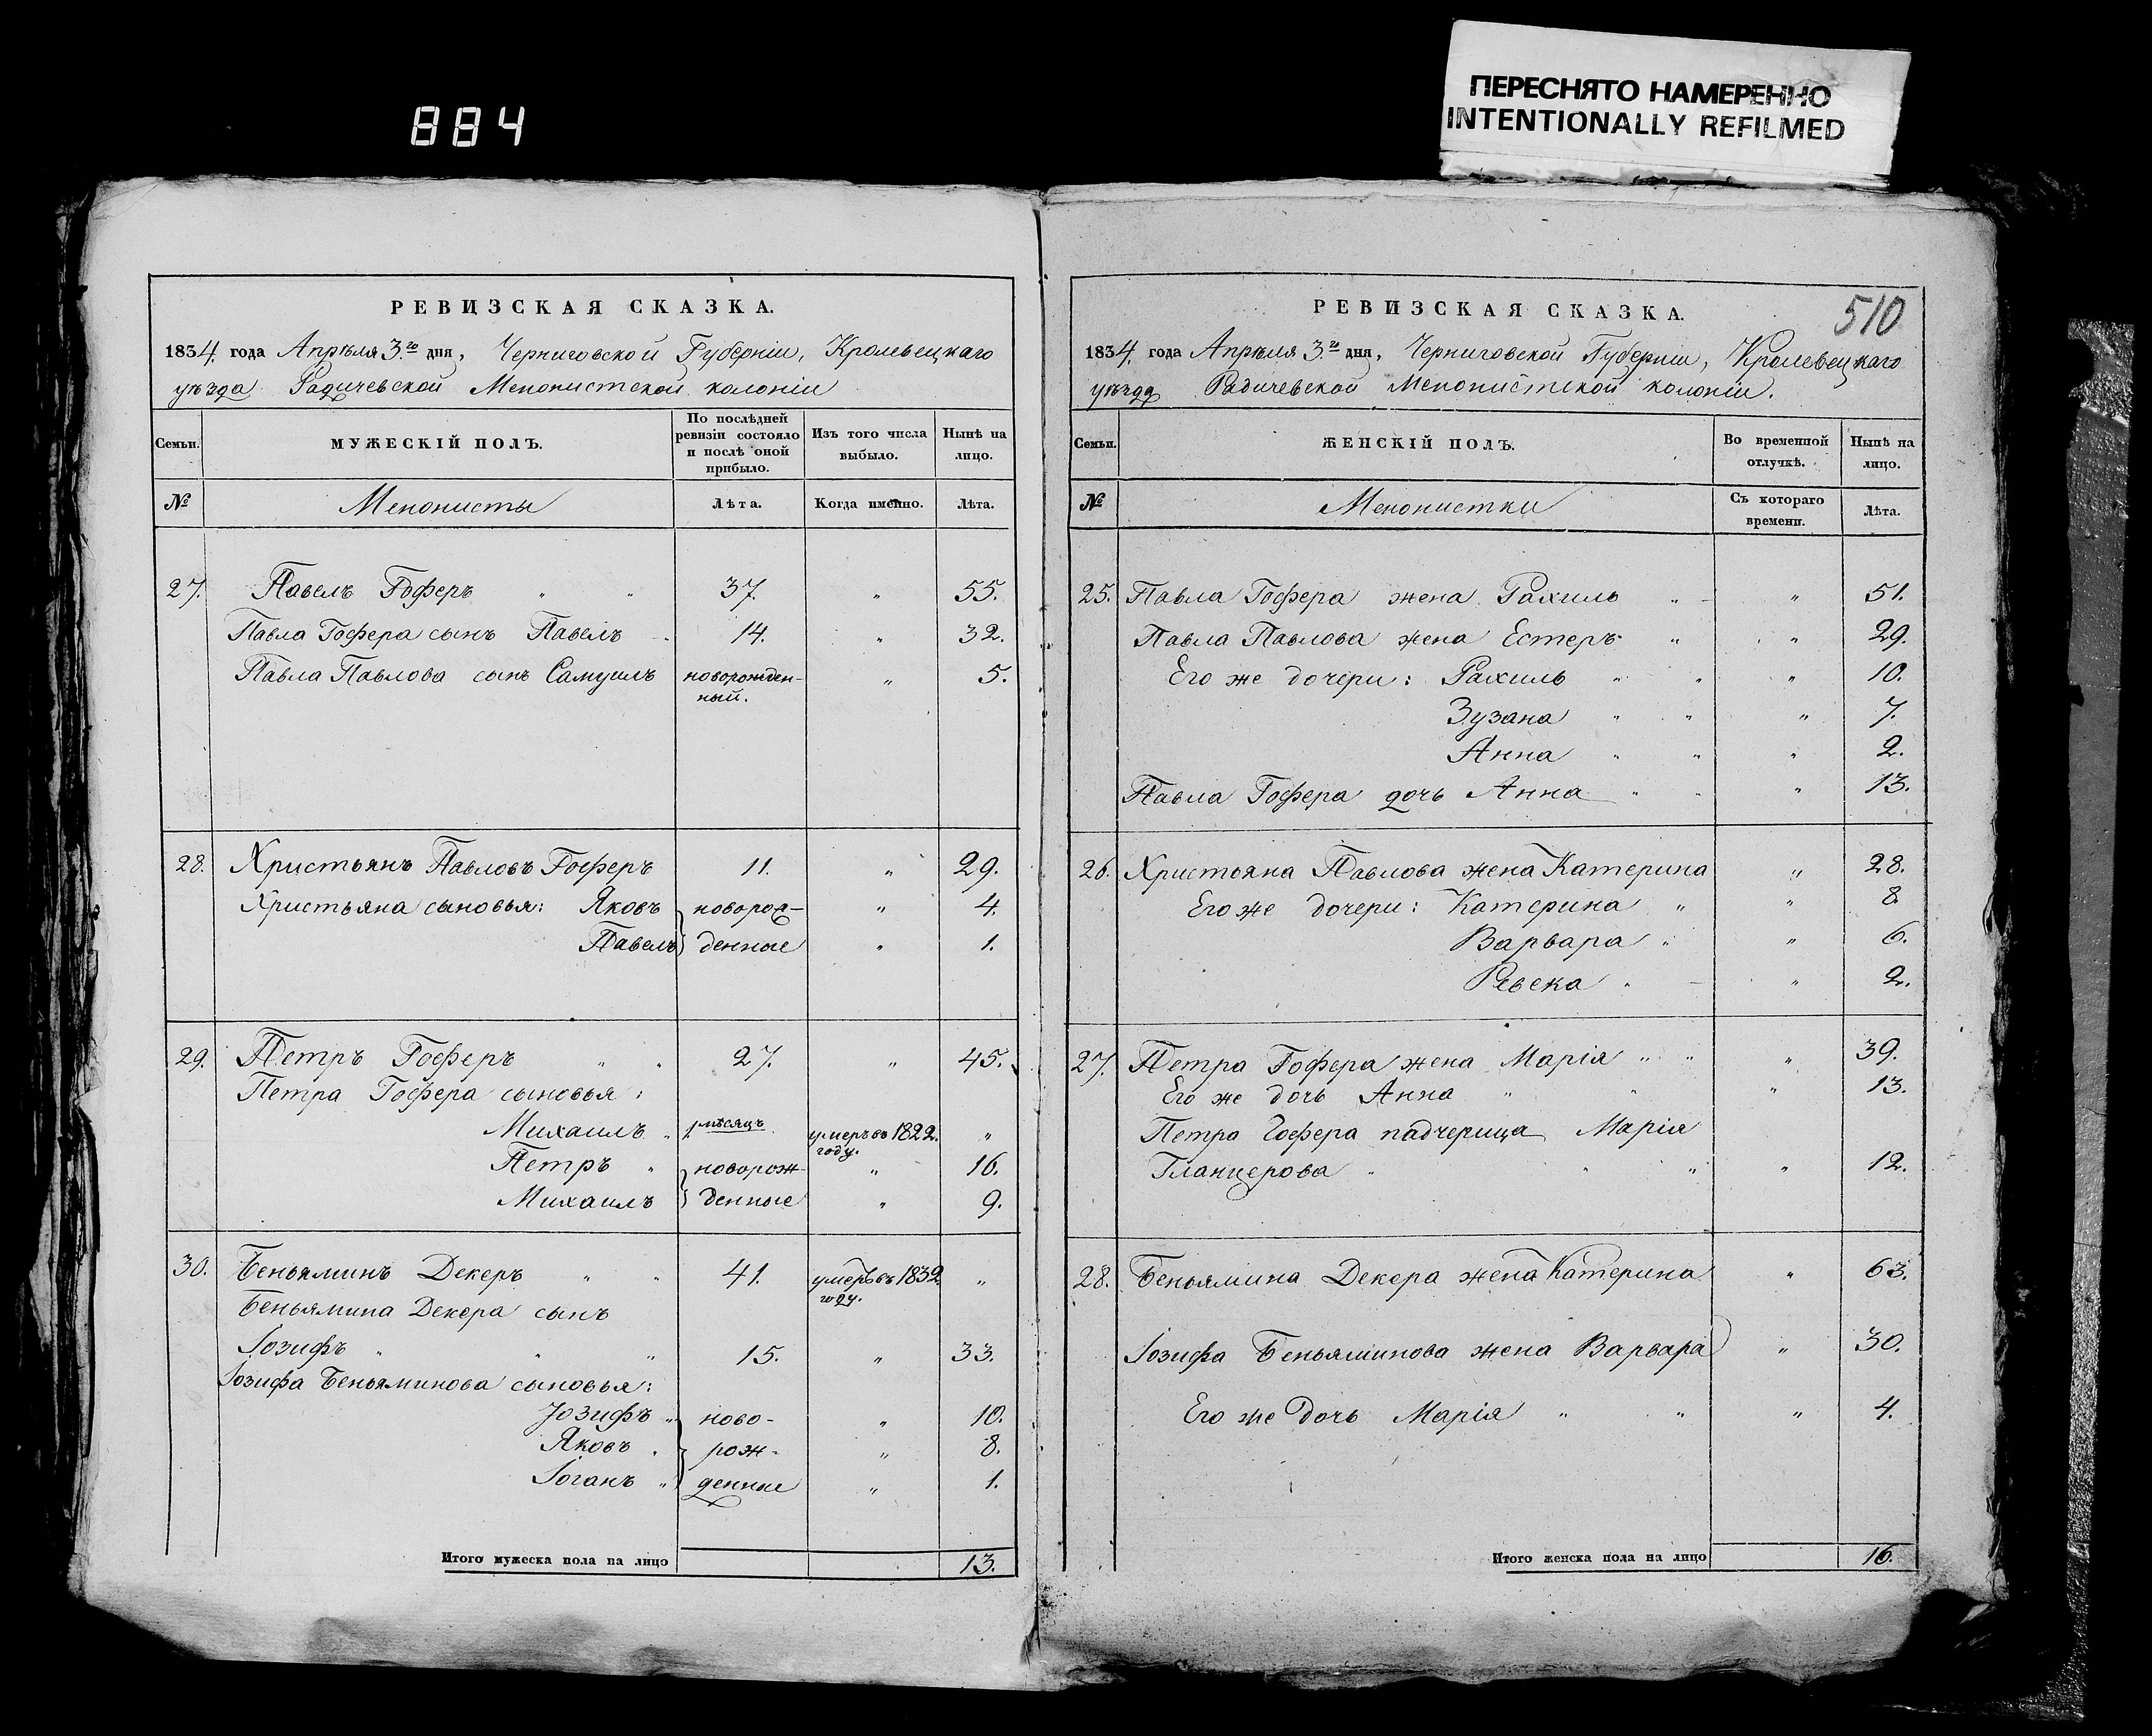 884
ПЕРЕСНЯТО НАМЕРЕННО
INTENTIONALLY REFILMED
РЕВИЗСКАЯ СКАЗКА.
1834. года Апрѣля 3.го дня, Черниговской Губерніи, Кролевецкаго
уѣзда Радичевской Менонистской колоніи
Семьи. МУЖЕСКІЙ ПОЛЪ. По послѣдней ревизіи состояло и послѣ оной прибыло. Изъ того числа выбыло. Нынѣ на лицо.
№ Менонисты Лѣта. Когда именно. Лѣта.
27. Павелъ Гоферъ " " 37. " 55.
Павла Гофера сынъ Павелъ 14. " 32.
Павла Павлова сынъ Самуилъ новорожден- " 5.
ный.
28. Христьянъ Павловъ Гоферъ 11. " 29.
Христьяна сыновья: Яковъ новорож- " 4.
Павелъ денные " 1.
29. Петръ Гоферъ " " 27. " 45.
Петра Гофера сыновья:
Михаилъ " 1. мѣсяцъ умеръ въ 1822. "
году.
Петръ " новорож- " 16.
Михаилъ денные " 9.
30. Беньяминъ Декеръ " " 41. умеръ въ 1832 "
году.
Беньямина Декера сынъ
Іозифъ " " " 15. " 33.
Іозифа Беньяминова сыновья:
Іозифъ " ново- " 10.
Яковъ " рож- " 8.
Іоганъ " денные " 1.
Итого мужеска пола на лицо 13.
РЕВИЗСКАЯ СКАЗКА.
510
1834. года Апрѣля 3.го дня, Черниговской Губерніи, Кролевецкаго
уѣзда Радичевской Менонистской колоніи.
Семьи. ЖЕНСКІЙ ПОЛЪ. Во временной отлучкѣ. Нынѣ на лицо.
№ Менонистки Съ котораго времени. Лѣта.
25. Павла Гофера жена Рахиль " " 51.
Павла Павлова жена Естеръ " " 29.
Его же дочери: Рахиль " " " 10.
Зузана " " " 7.
Анна " " " 2.
Павла Гофера дочь Анна " " " 13.
26. Христьяна Павлова жена Катерина " 28.
Его же дочери: Катерина " " 8.
Варвара " " 6.
Ревека " " 2.
27. Петра Гофера жена Марія " " " 39.
Его же дочь Анна " " " 13.
Петра Гофера падчерица Марія
Гланцерова " " " " 12.
28. Беньямина Декера жена Катерина " 63.
Іозифа Беньяминова жена Варвара " 30.
Его же дочь Марія " " " 4.
Итого женска пола на лицо 16.